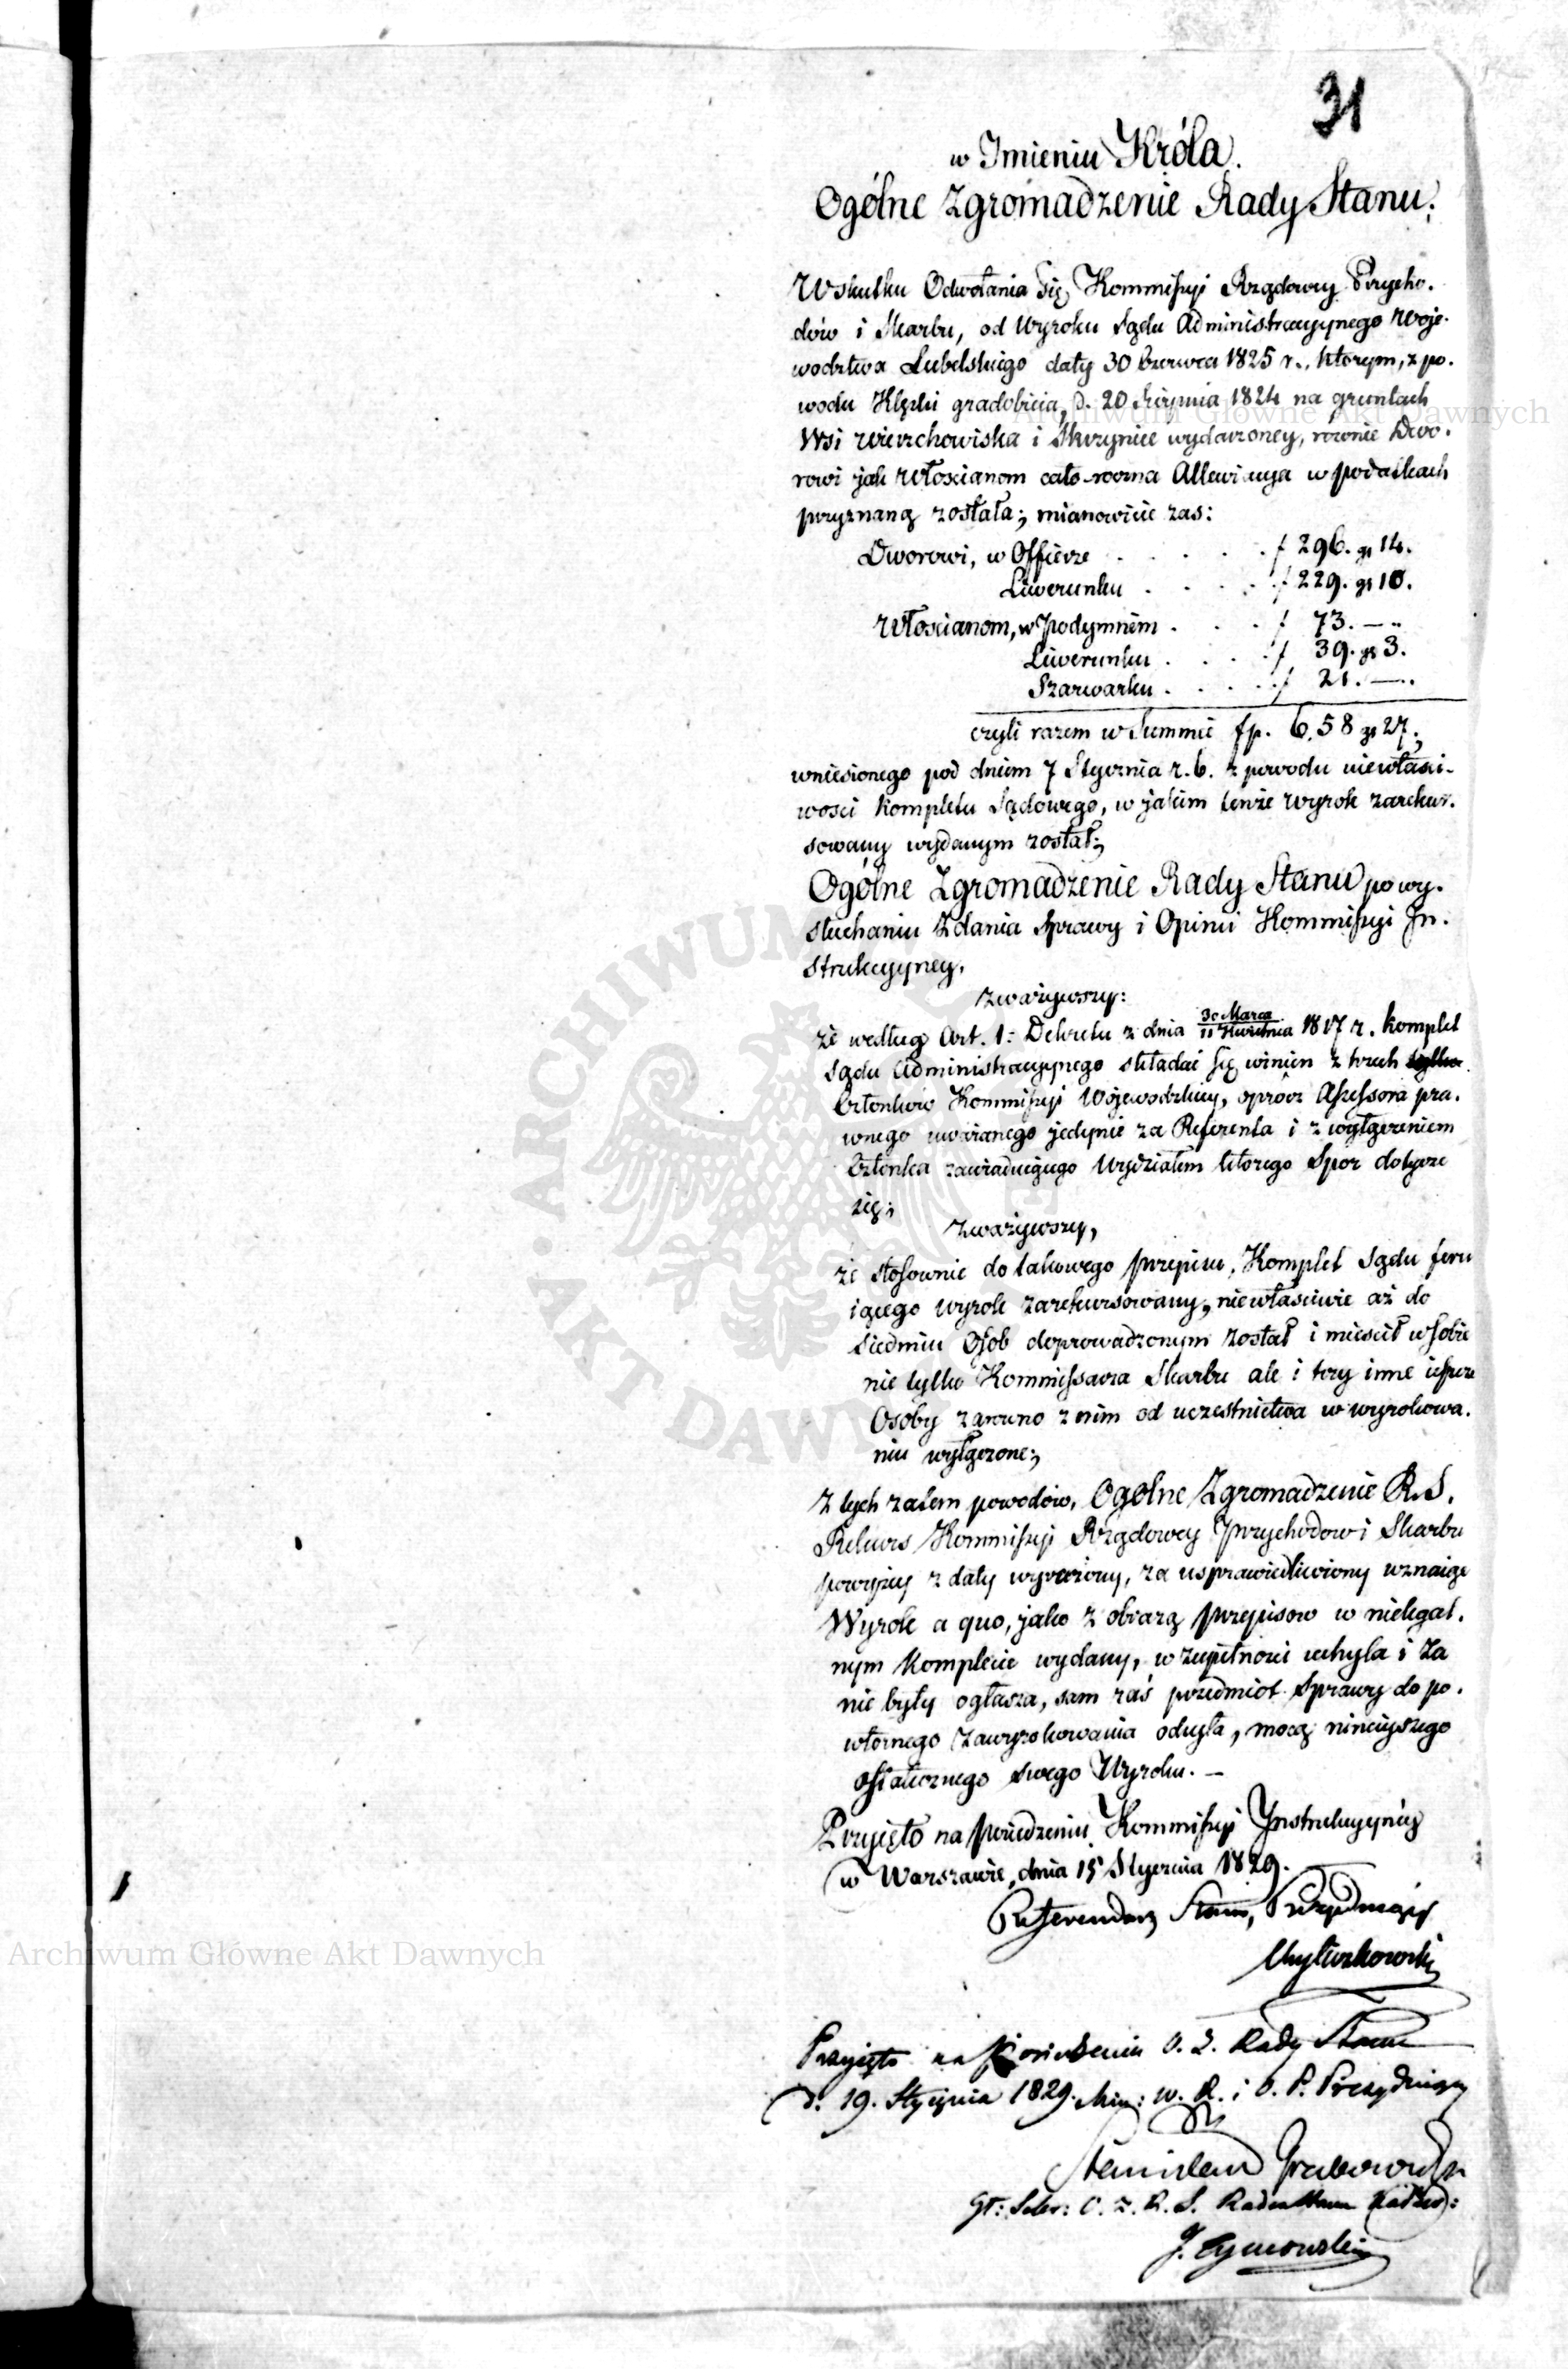 31
w Imieniu Króla.
Ogólne Zgromadzenie Rady Stanu.
Wskutku Odwołania się Kommissyi Rządowey Przycho-
dów i Skarbu, od Wyroku Sądu Administracyjnego Woje-
wodztwa Lubelskiego daty 30 Czerwca 1825 r., którym, z po-
wodu Klęski gradobicia, d. 20 Sierpnia 1824 na gruntach
Wsi Wierzchowiska i Skrzynice wydarzoney, rownie Dwo-
rowi jak Włoscianom cało-roczna Allewiacya w podatkach
przyznaną została; mianowicie zas:
Dworowi, w Offierze . . . . . f 296. gr 14.
Liwerunku . . . . . f 229. gr 10.
Włoscianom, w Podymnem . . . f 73. — "
Liwerunku . . . . f 39. gr 3.
Szarwarku . . . . . f 21. —.
czyli razem w Summie fp. 6,58 gr 27;
wniesionego pod dniem 7 Stycznia r. b. z powodu niewłasci-
wosci kompletu Sądowego, w jakim tenże Wyrok zarekur-
sowany wydanym został;
Ogólne Zgromadzenie Rady Stanu po wy-
słuchaniu Zdania Sprawy i Opinii Kommissyi In-
strukcyyney,
Zważywszy:
że według Art. 1: Dekretu z dnia 30 Marca / 11 Kwietnia 1817 r. komplet
Sądu Administracyjnego składać się winien z trzech tylko
Członków Kommissyi Wojewodzkiey, oprócz Assessora pra-
wnego uważanego jedynie za Referenta i z wyłączeniem
Członka zawiaduiącego Wydziałem którego Spór dotycze
się;
Zważywszy,
że stosownie do takowego przepisu, Komplet Sądu feru
iącego Wyrok zarekursowany, niewłasciwie aż do
siedmiu Osob doprowadzonym został i miescił w sobie
nie tylko Kommissarza Skarbu ale i trzy inne ieszcze
Osoby zarowno z nim od uczestnictwa w wyrokowa-
niu wyłączone;
Z tych zatem powodów, Ogolne Zgromadzenie R. S.
Rekurs Kommissyi Rządowey Przychodow i Skarbu
powyżey z daty wyrażony, za usprawiedliwiony uznaiąc
Wyrok a quo, jako z obrazą przepisow w nielegal-
nym Komplecie wydany, w zupełnosci uchyla i za
nie były ogłasza, sam zaś przedmiot Sprawy do po-
wtornego zawyrokowania odsyła, mocą ninieyszego
ostatecznego swego Wyroku. —
Przyięto na posiedzeniu Kommissyi Instrukcyyney
w Warszawie, dnia 15 Stycznia 1829.
Referendarz Stanu, Prezyduiący
Przyięto na posiedzeniu O. Z. Rady Stanu
d. 19. Stycznia 1829. Min: W. R. i O. P. Prezyduiący
Stanisław Grabowski
Gł: Sekr: O. Z. R. S. Radca Stanu
J. Tymowski
Archiwum Główne Akt Dawnych
Archiwum Główne Akt Dawnych
ARCHIWUM • AKT DAWN